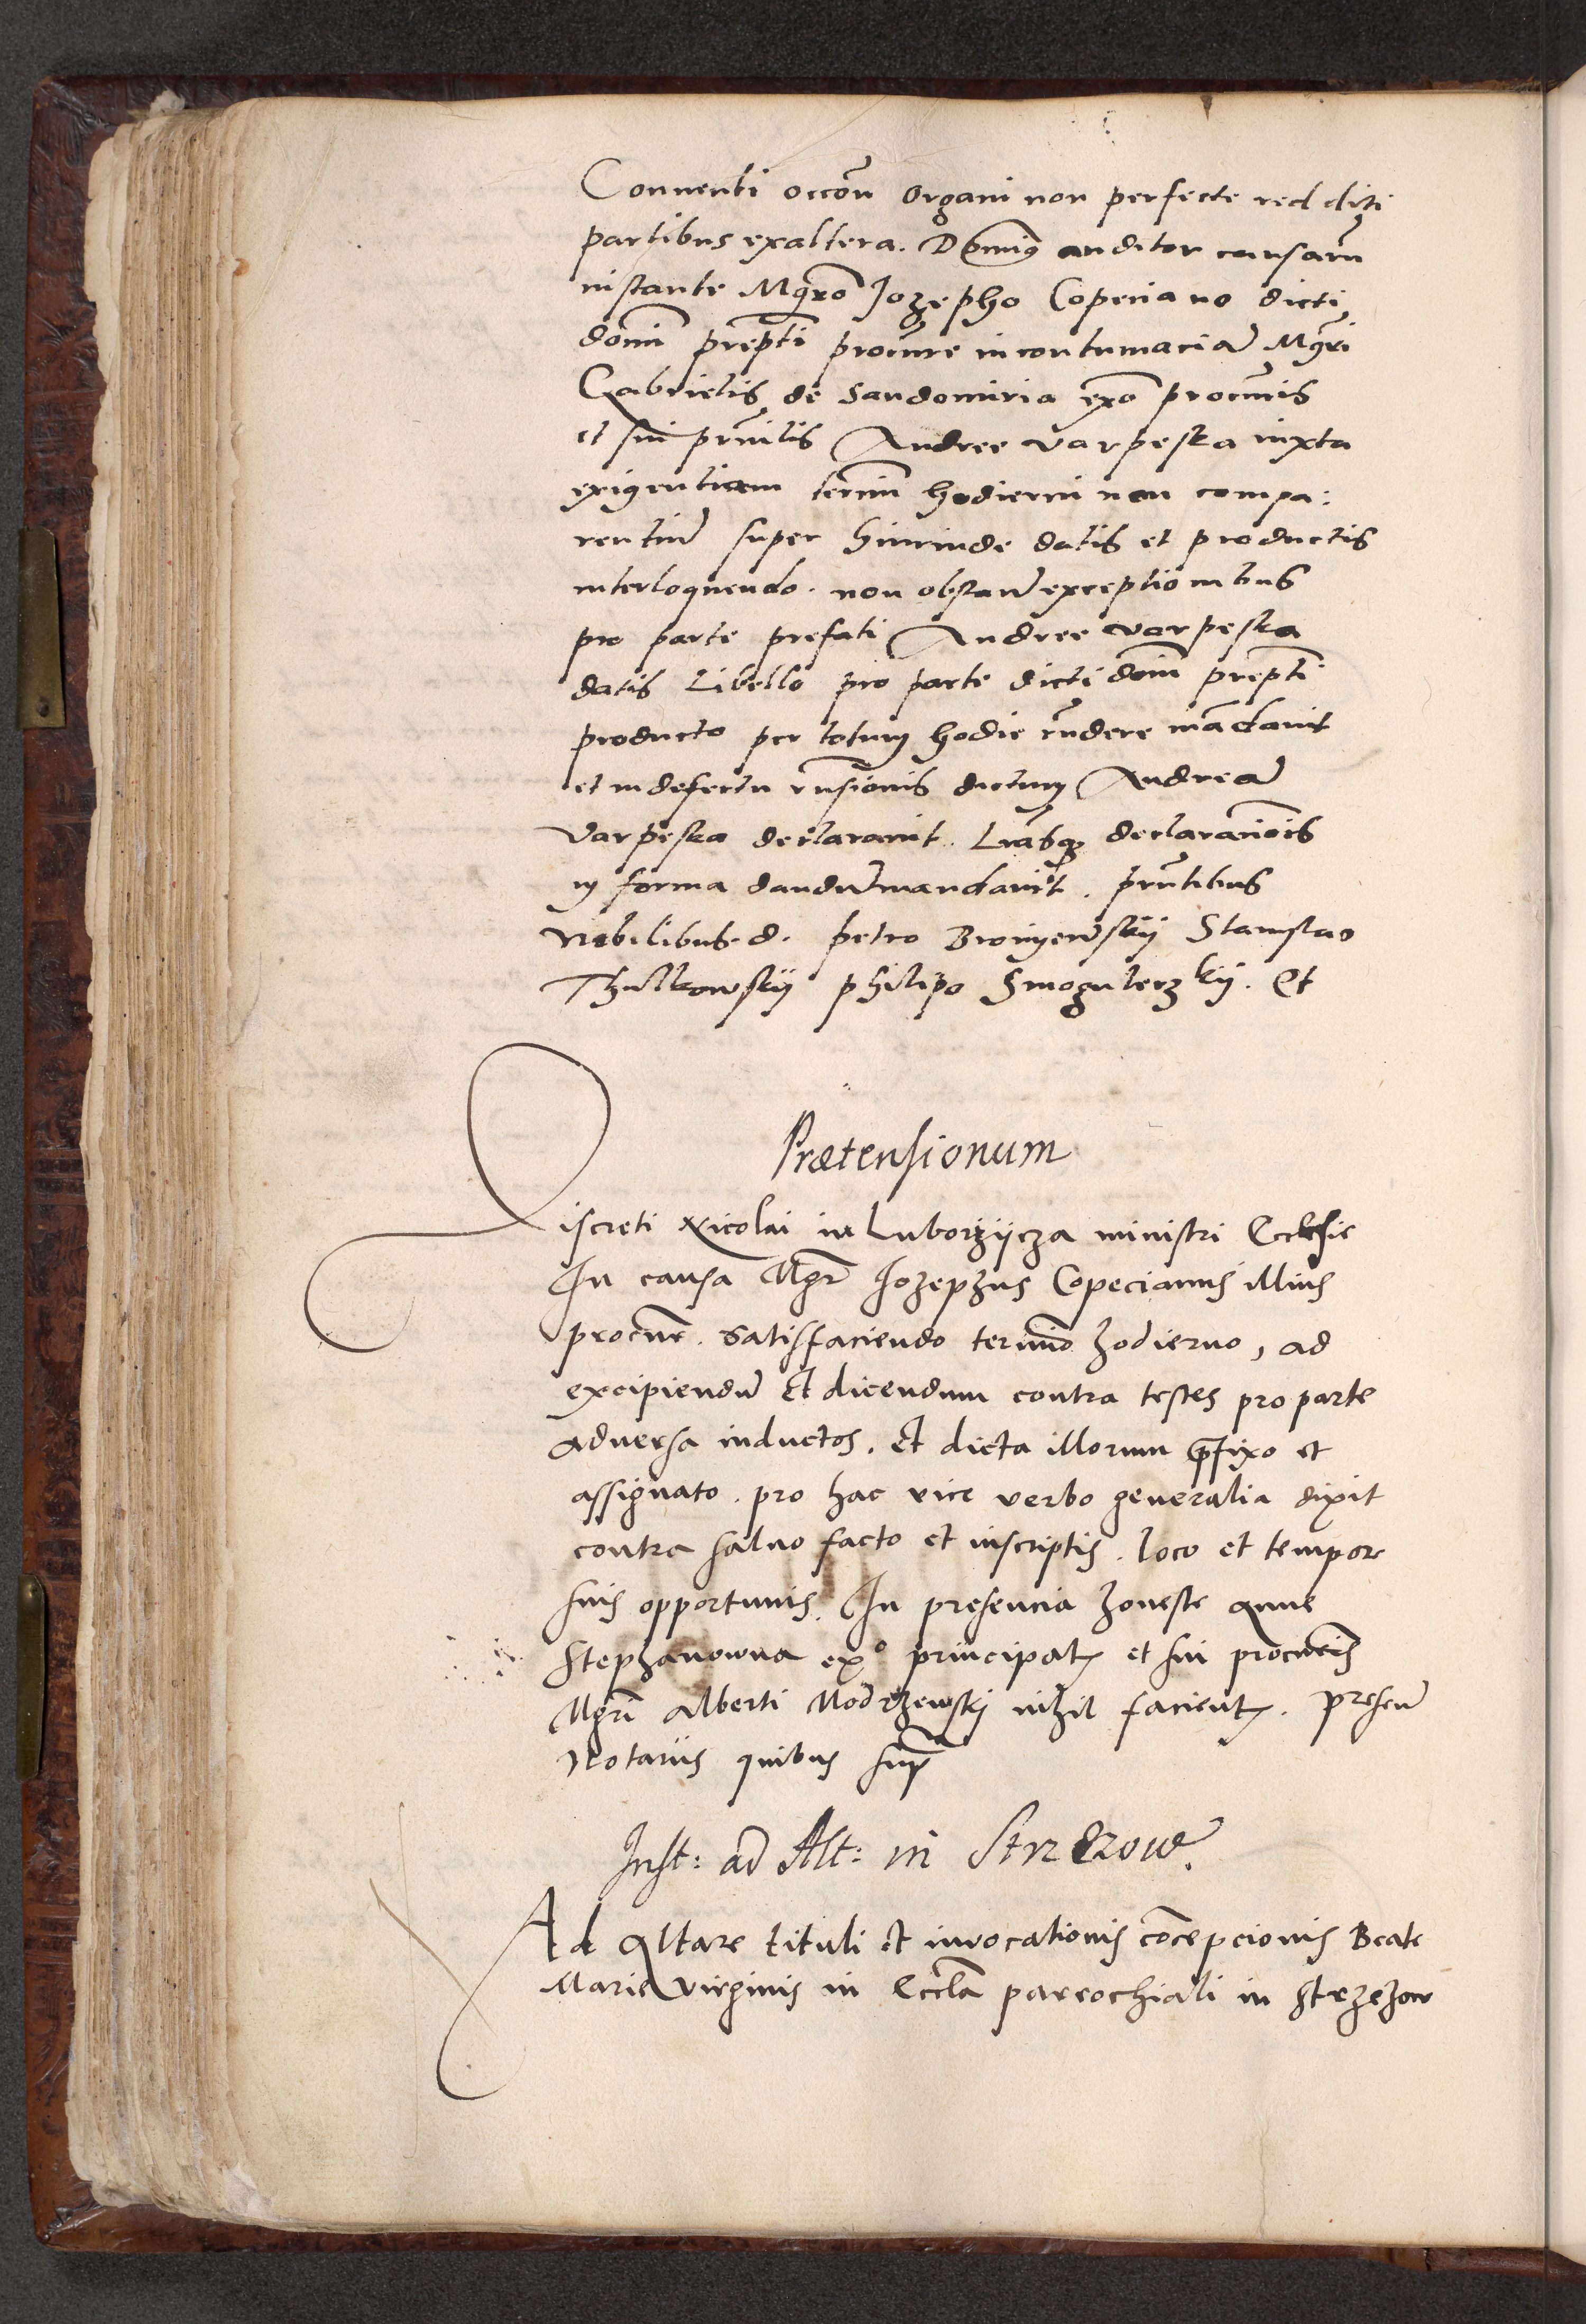 Conuenti occōn Organi non perfecte red diti
partibus exaltera. Dominus auditor causarū
instante Mgrō Jozepho Copeciano dicti
domī prepti procure in contumaciā Mgri
Gabrielis de Sandomiria exo procuris
et sui prncilis Andree Varpeska iuxta
exigentiam termī hodierni non compa:
rentiū super hincinde datis et productis
interloquendo. non obstanł exceptionibus
pro parte prefati Andree Varpeska
datis Libello pro parte dicti domī prepti
producto per totum hodie rndere mādauit
et in defectu rnsionis dictum Andreā
Varpeska declarauit. Lrasq declaracionis
in forma dandū mandauit. prntibus
Nobilibus. d. petro Bronyewskij Stanislao
Thulkowskij philipo Smogulerzkij. Et
Prætensionum
Discreti Nicolai in Luborzijcza ministri Ecclesie
In causa Mgr Jozephus Copecianus illius
procur. Satisfaciendo termino hodierno, ad
excipiendū Et dicendum contra testes pro parte
aduersa inductos. Et dicta illorum pfixo et
assignato. pro hac vice verbo generalia dixit
contra saluo facto et inscriptis. loco et tempore
suis opportunis. In presencia honeste Anne
Stephanowna exº principalis et sui procuris
Mgri Alberti Modrzewskj nihil facientis. presenł
Notariis quibus supra
Inst: ad Alt: in Strzezow.
Ad Altare tituli et inuocationis cōcepcionis Beate
Marie Virginis in Eccla parrochiali in Strzezow